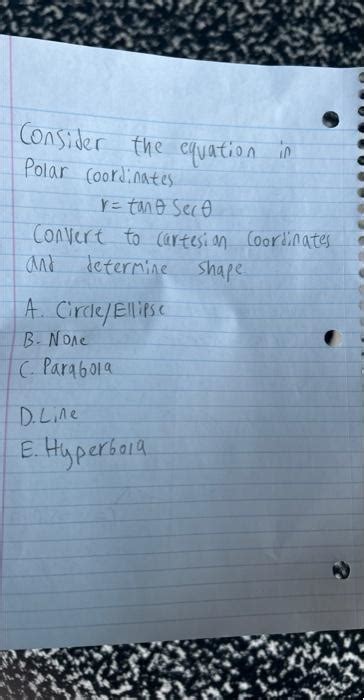 Consider the equation in
Polar Coordinates
r = tan θ Sec θ
Convert to Cartesian Coordinates
and determine shape.
A. Circle/Ellipse
B. None
C. Parabola
D. Line
E. Hyperbola